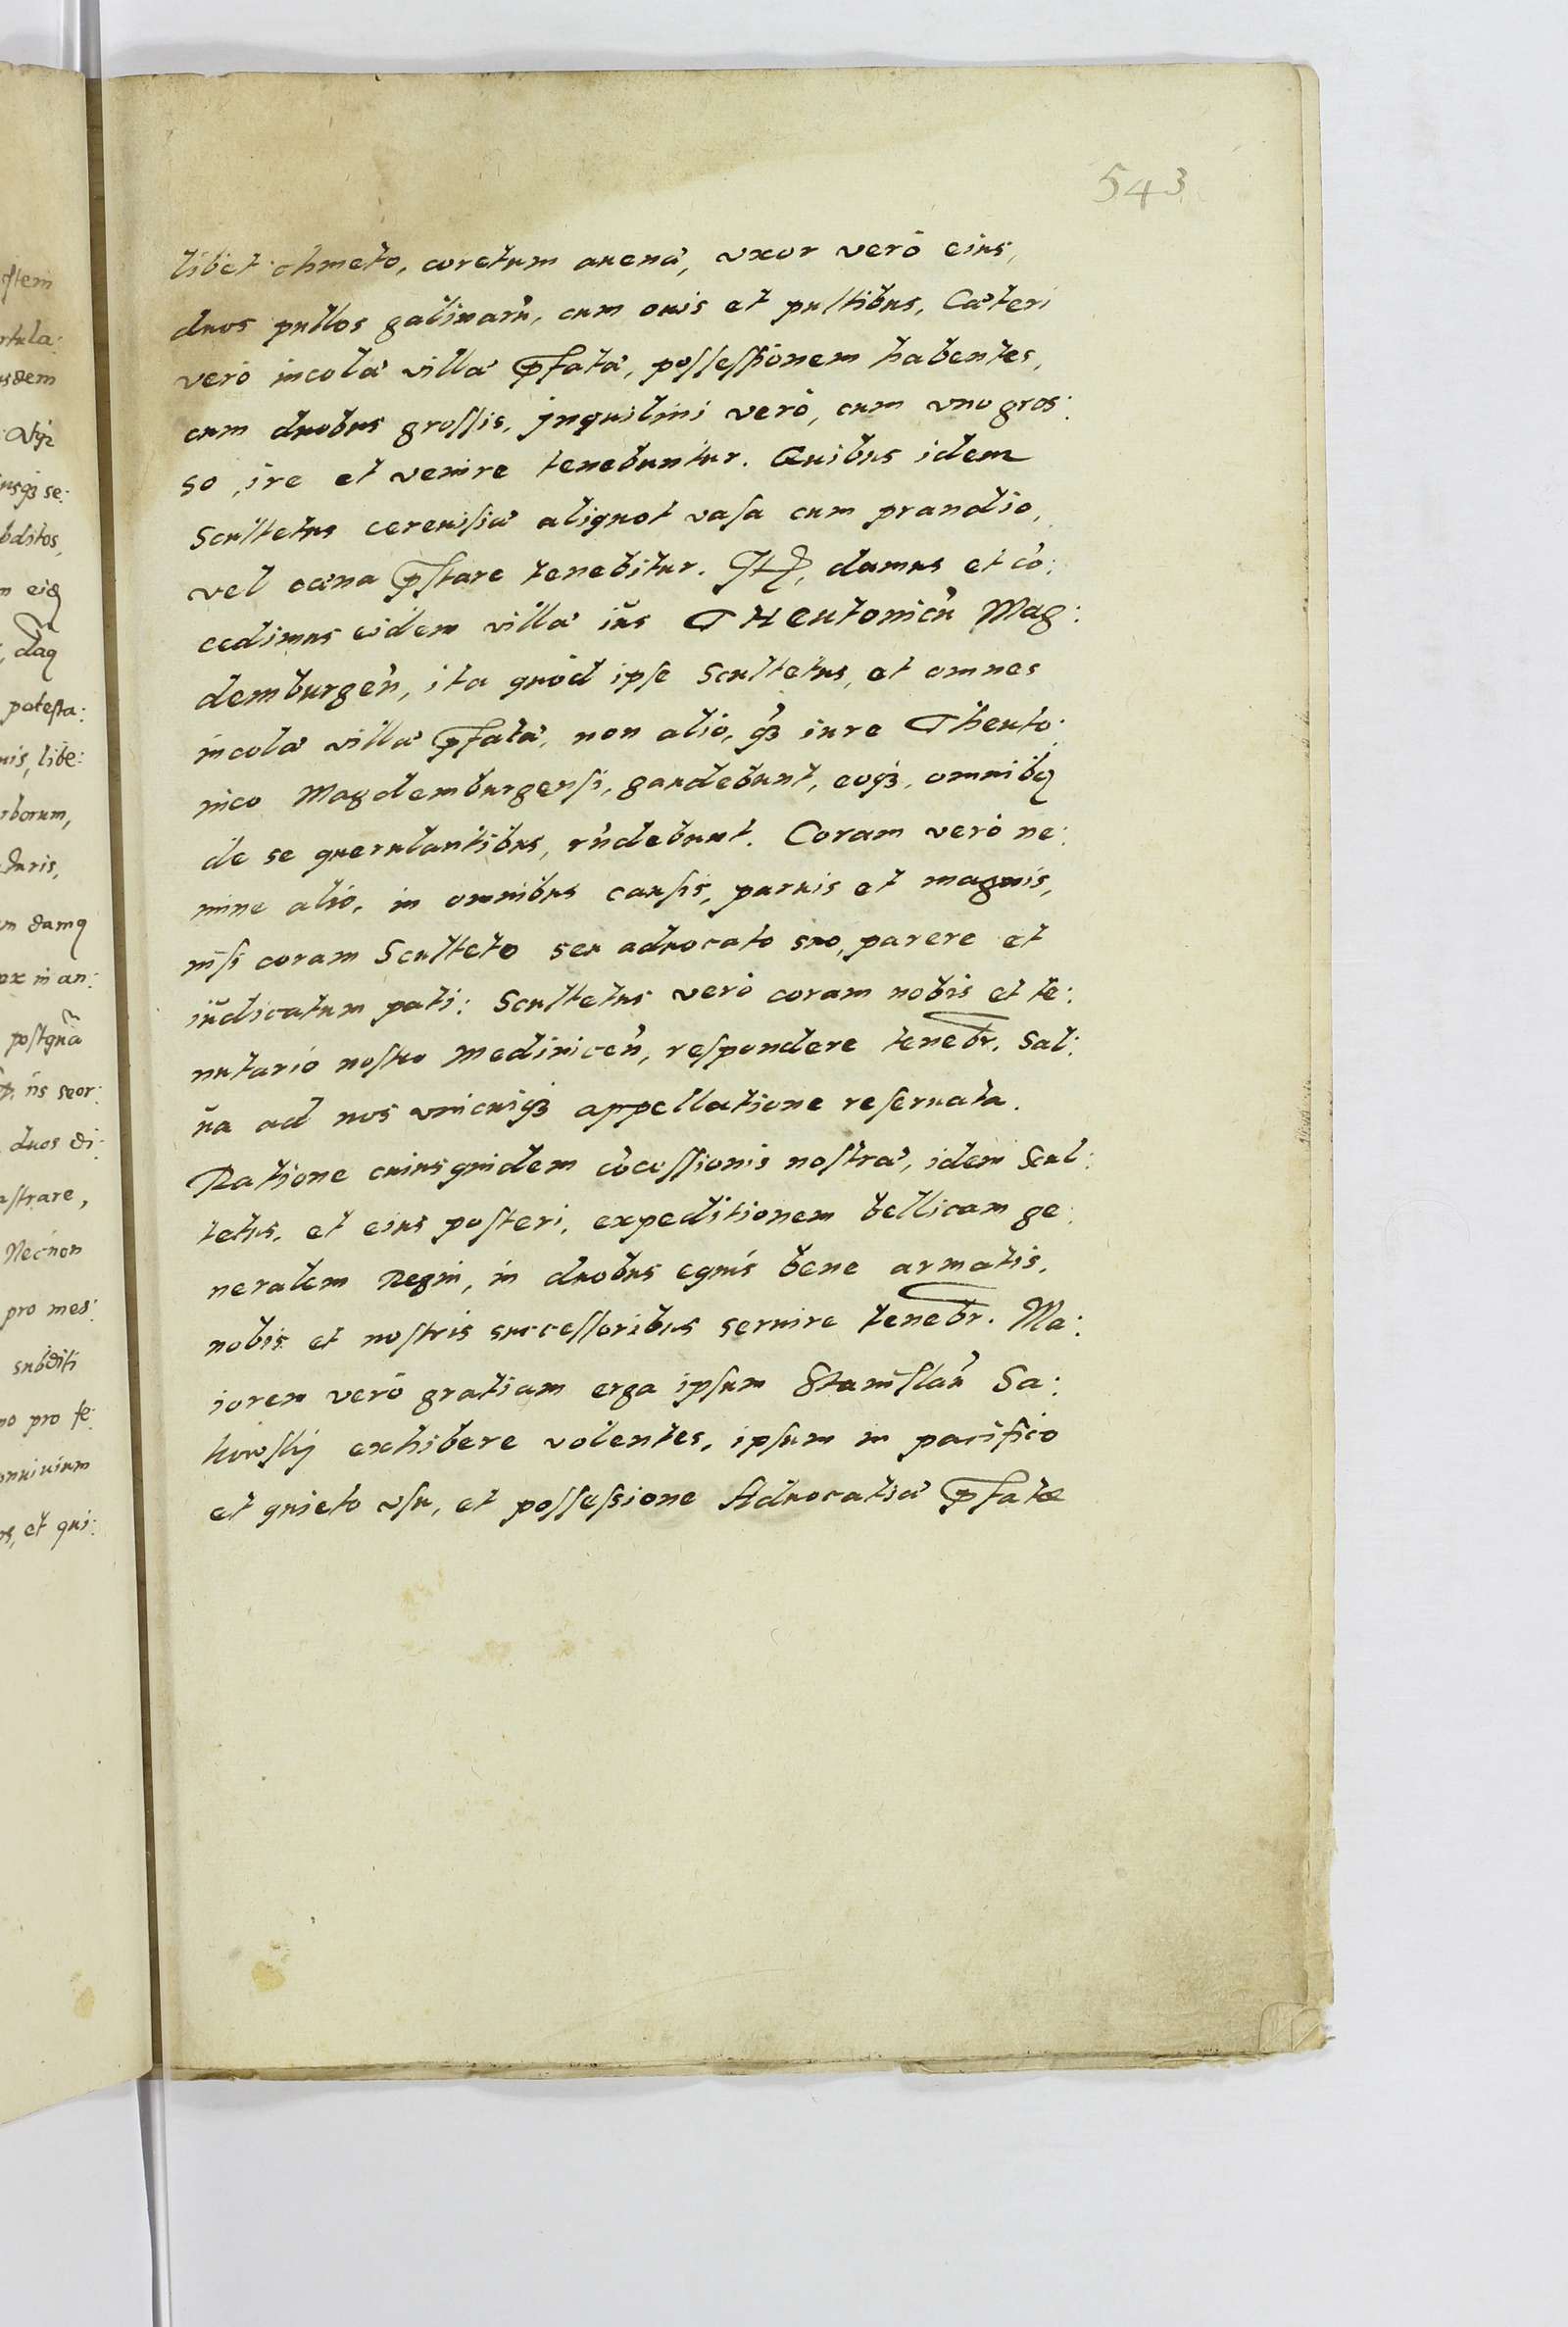 543
libet chmeto, coretum auenæ, vxor verò eius,
duos pullos galinarũ, cum ouis et pultibus, Cæteri
verò incolæ villæ p̃fatæ, possessionem habentes,
cum duobus grossis, jnquilini verò, cum vno gros:
so, ire et venire tenebuntur. Quibus idem
Scultetus cereuisiæ aliquot vasa cum prandio,
vel cæna p̃stare tenebitur. Itẽ, damus et cõ:
cedimus eidem villæ iŭs THeutonicũ Mag:
demburgeñ, ita quòd ipse Scultetus, et omnes
incolæ villæ p̃fatæ, non alio, q̃ȝ iure Theuto:
nico Magdemburgensi, gaudebunt, eoqȝ, omnibꝫ
de se querulantibus, rñdebunt. Coram verò ne:
mine alio, in omnibus causis, paruis et magnis,
nisi coram Sculteto seu aduocato suo, parere et
iŭdicatum pati: Scultetus verò coram nobis et te:
nutario nostro Mediniceñ, respondere tenebr̃. Sal:
ŭa ad nos vnicuiqȝ appellatione reseruata.
Ratione cuiusquidem cõcessionis nostræ, idem Scul:
tetus, et eius posteri, expeditionem bellicam ge:
neralem Regni, in duobus equis bene armatis,
nobis et nostris successoribus seruire tenebr̃. Ma:
iorem verò gratiam erga ipsum Stanislaũ Sa:
kowskij exhibere volentes, ipsum in pacifico
et quieto vsu, et possessione Aduocatiæ p̃fatæ
stem
rtula:
usdem
iusqȝ se:
bditos,
potesta:
nis, libe:
rborum,
duris,
m damꝫ
ox in an:
postquã
iis seor:
duos di:
astrare,
Necnon
pro mes:
subditi
no pro fe:
onuiuium
os, et qui: